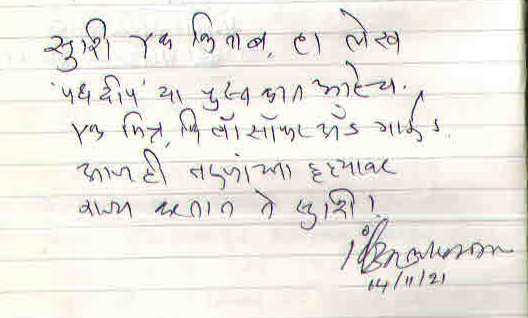 सुशि एक किताब, हा लेख
'पथदीप' या पुस्तकात आहेच.
एक मित्र, फिलॉसॉफर अँड गाईड.
आजही तरुणांच्या हृदयावर
राज्य करतात ते सुशि!
14/11/21